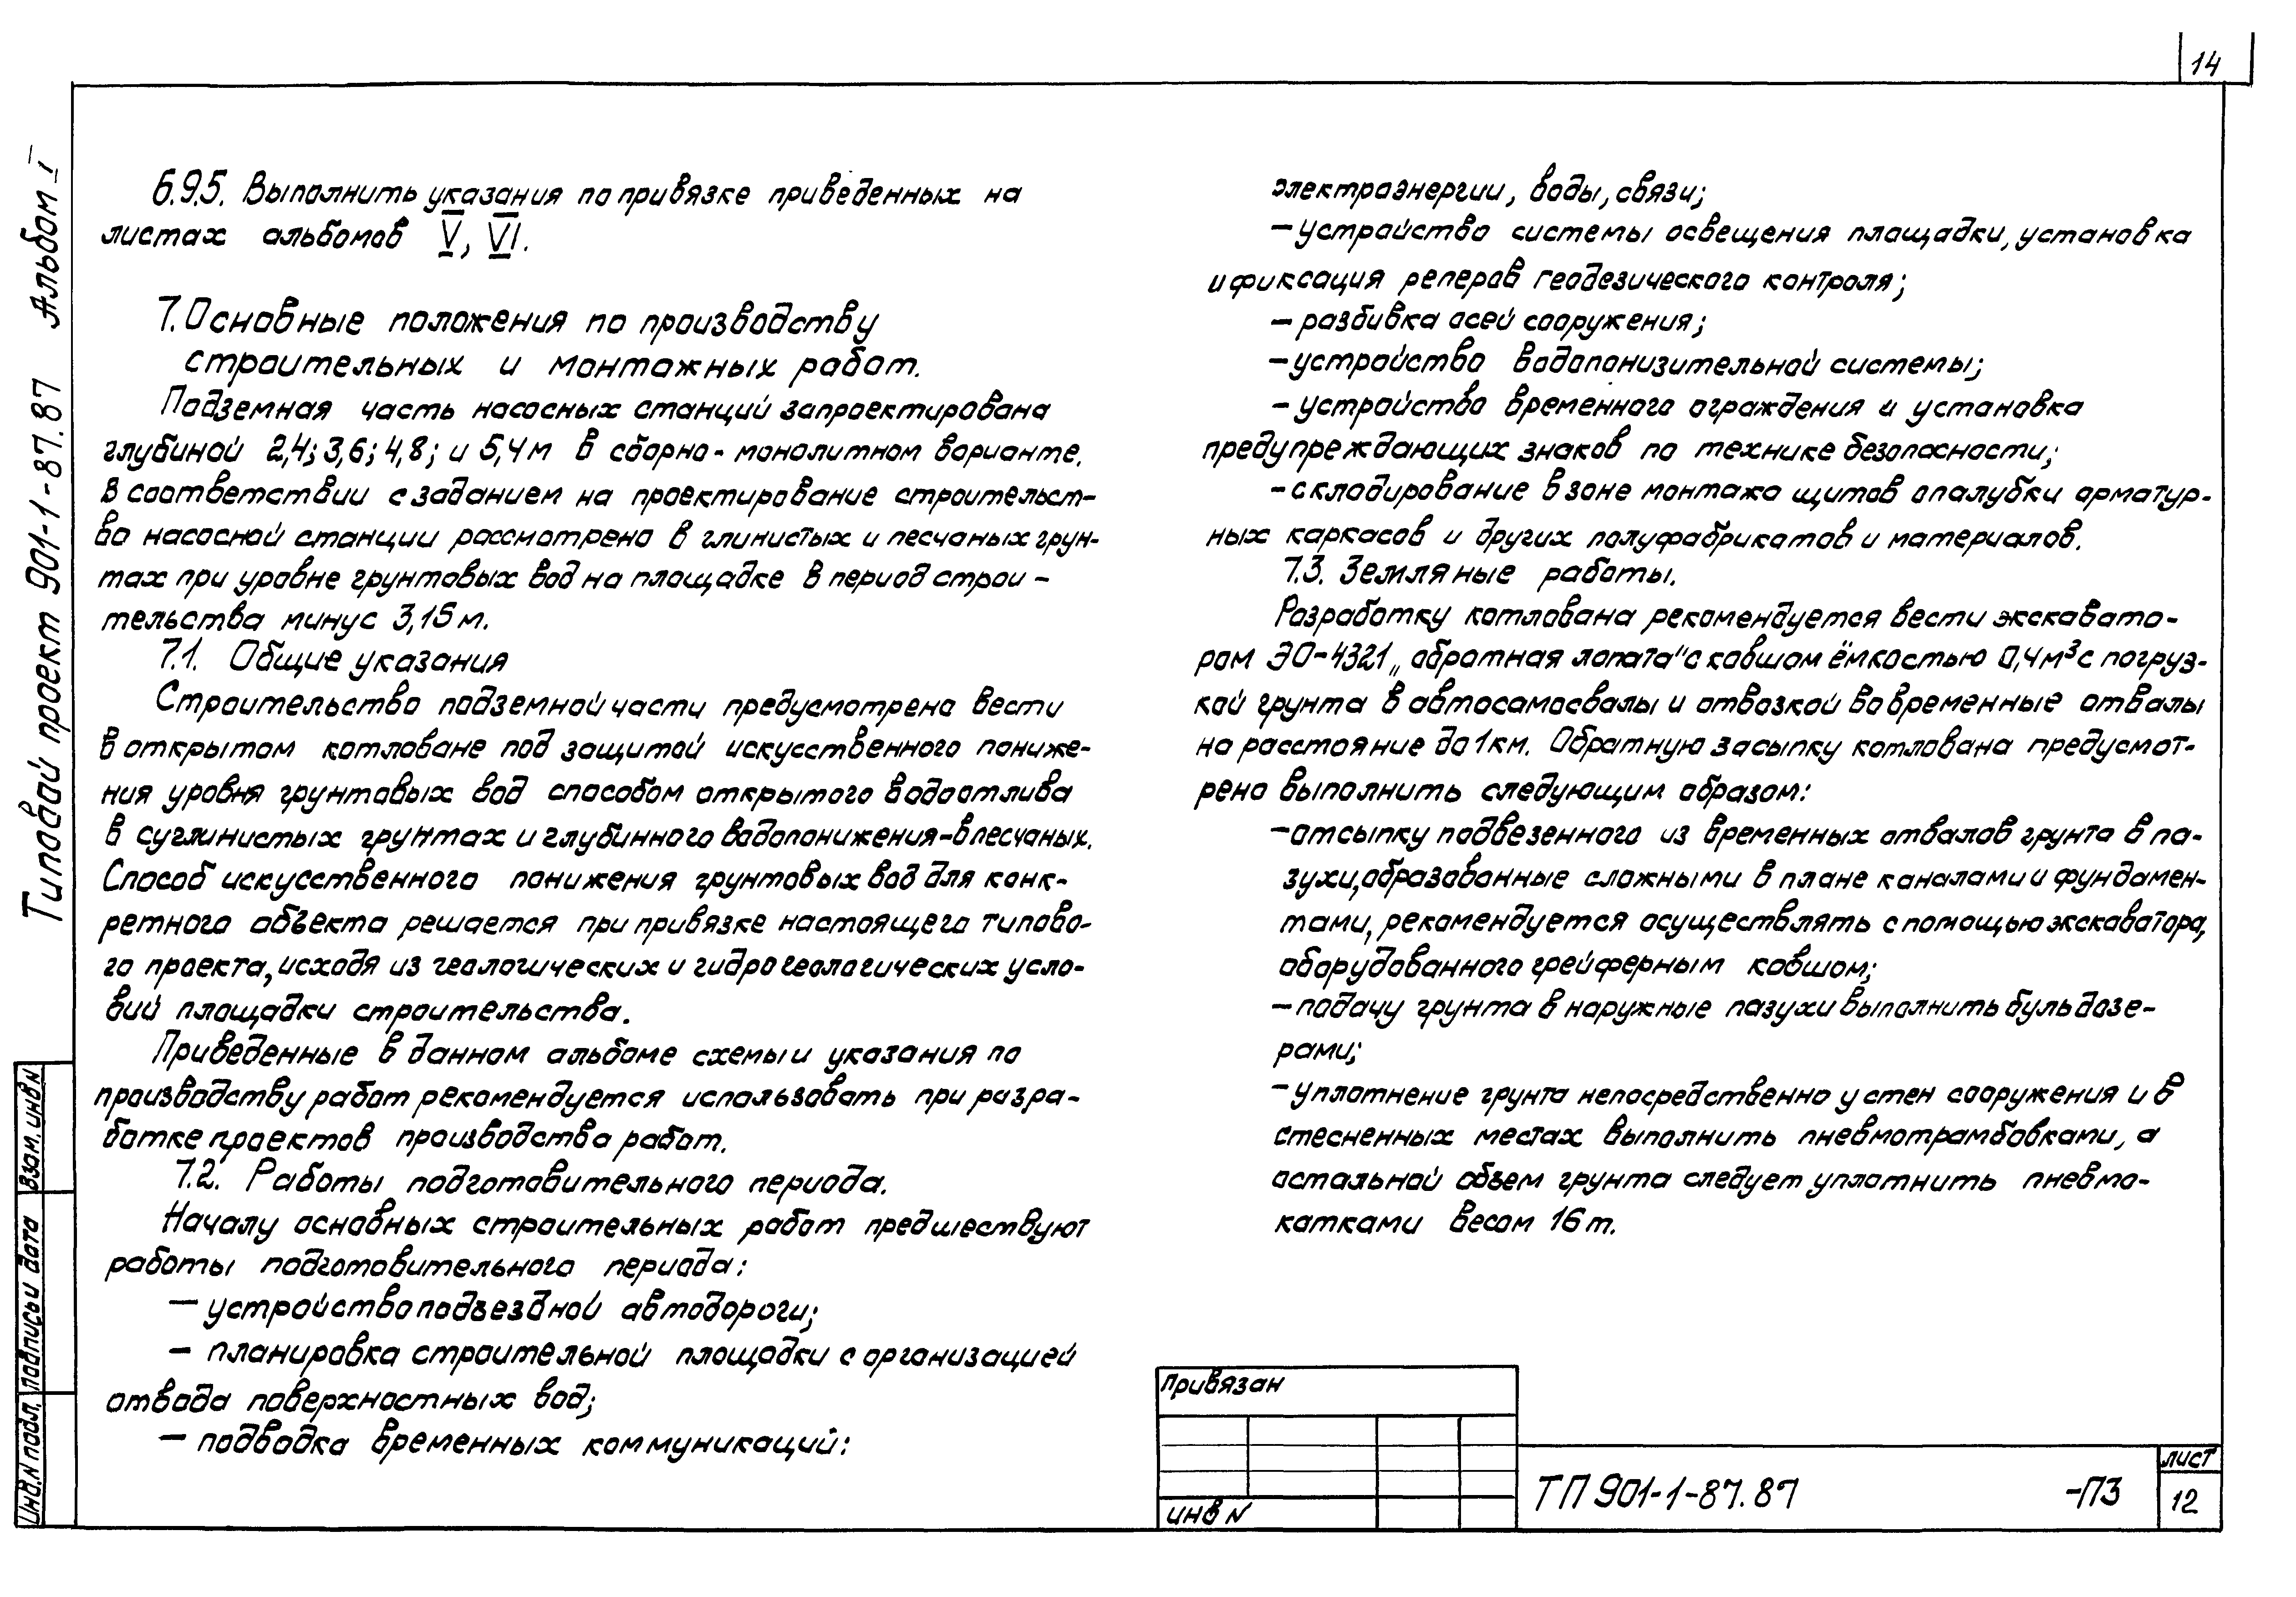 14
Типовой проект 901-1-87.87 Альбом I
6.9.5. Выполнить указания по привязке приведенных на
листах альбомов V, VI.
7. Основные положения по производству
строительных и монтажных работ.
Подземная часть насосных станций запроектирована
глубиной 2,4; 3,6; 4,8; и 5,4м в сборно-монолитном варианте.
В соответствии с заданием на проектирование строительст-
во насосной станции рассмотрено в глинистых и песчаных грун-
тах при уровне грунтовых вод на площадке в период строи-
тельства минус 3,15м.
7.1. Общие указания
Строительство подземной части предусмотрено вести
в открытом котловане под защитой искусственного пониже-
ния уровня грунтовых вод способом открытого водоотлива
в суглинистых грунтах и глубинного водопонижения-в песчаных.
Способ искусственного понижения грунтовых вод для конк-
ретного объекта решается при привязке настоящего типово-
го проекта, исходя из геологических и гидрогеологических усло-
вий площадки строительства.
Приведенные в данном альбоме схемы и указания по
производству работ рекомендуется использовать при разра-
ботке проектов производства работ.
7.2. Работы подготовительного периода.
Началу основных строительных работ предшествуют
работы подготовительного периода:
— устройство подъездной автодороги;
— планировка строительной площадки с организацией
отвода поверхностных вод;
— подводка временных коммуникаций:
электроэнергии, воды, связи;
— устройство системы освещения площадки, установка
и фиксация реперов геодезического контроля;
— разбивка осей сооружения;
— устройство водопонизительной системы;
— устройство временного ограждения и установка
предупреждающих знаков по технике безопасности;
— складирование в зоне монтажа щитов опалубки арматур-
ных каркасов и других полуфабрикатов и материалов.
7.3. Земляные работы.
Разработку котлована рекомендуется вести экскавато-
ром ЭО-4321 „обратная лопата" с ковшом ёмкостью 0,4м³ с погруз-
кой грунта в автосамосвалы и отвозкой во временные отвалы
на расстояние до 1км. Обратную засыпку котлована предусмот-
рено выполнить следующим образом:
— отсыпку подвезенного из временных отвалов грунта в па-
зухи, образованные сложными в плане каналами и фундамен-
тами, рекомендуется осуществлять с помощью экскаватора,
оборудованного грейферным ковшом;
— подачу грунта в наружные пазухи выполнить бульдозе-
рами;
— уплотнение грунта непосредственно у стен сооружения и в
стесненных местах выполнить пневмотрамбовками, а
остальной объем грунта следует уплотнить пневмо-
катками весом 16т.
Взам. инв N
Подпись и дата
Инв. N подл.
Привязан
инв N
ТП 901-1-87.87 -ПЗ
лист
12